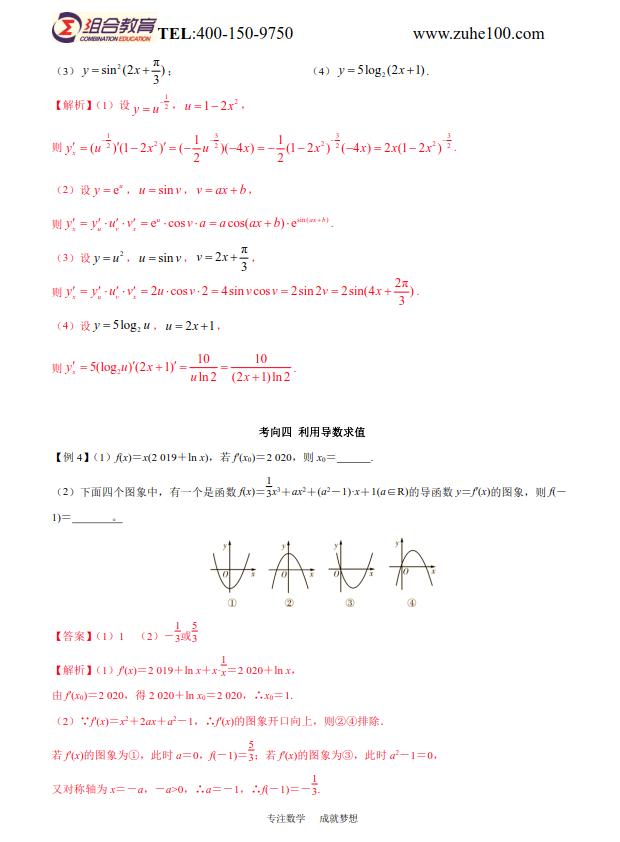 组合教育
COMBINATION EDUCATION
TEL:400-151-9750
www.zuhe100.com
（3） y＝sin²(2x＋π/3)； （4） y＝5log₂(2x＋1).
【解析】（1）设 y＝u^(-1/2)，u＝1－2x²，
则 y′ₓ＝(u^(-1/2))′(1－2x²)′＝(－1/2 u^(-3/2))(－4x)＝－1/2(1－2x²)^(-3/2)(－4x)＝2x(1－2x²)^(-3/2).
（2）设 y＝eᵘ，u＝sin v，v＝ax＋b，
则 y′ₓ＝y′ᵤ·u′ᵥ·v′ₓ＝eᵘ·cos v·a＝a cos(ax＋b)·e^(sin(ax＋b)).
（3）设 y＝u²，u＝sin v，v＝2x＋π/3，
则 y′ₓ＝y′ᵤ·u′ᵥ·v′ₓ＝2u·cos v·2＝4sin v cos v＝2sin 2v＝2sin(4x＋2π/3).
（4）设 y＝5log₂ u，u＝2x＋1，
则 y′ₓ＝5(log₂u)′(2x＋1)′＝10/(u ln 2)＝10/((2x＋1)ln 2).
考向四 利用导数求值
【例 4】（1）f(x)＝x(2 019＋ln x)，若 f′(x₀)＝2 020，则 x₀＝______.
（2）下面四个图象中，有一个是函数 f(x)＝1/3x³＋ax²＋(a²－1)·x＋1(a∈R)的导函数 y＝f′(x)的图象，则 f(－
1)＝________。
y O x y O x y O x y O x
① ② ③ ④
【答案】（1）1 （2）－1/3或5/3
【解析】（1）f′(x)＝2 019＋ln x＋x·1/x＝2 020＋ln x，
由 f′(x₀)＝2 020，得 2 020＋ln x₀＝2 020，∴x₀＝1.
（2）∵f′(x)＝x²＋2ax＋a²－1，∴f′(x)的图象开口向上，则②④排除.
若 f′(x)的图象为①，此时 a＝0，f(－1)＝5/3；若 f′(x)的图象为③，此时 a²－1＝0，
又对称轴为 x＝－a，－a>0，∴a＝－1，∴f(－1)＝－1/3.
专注数学 成就梦想